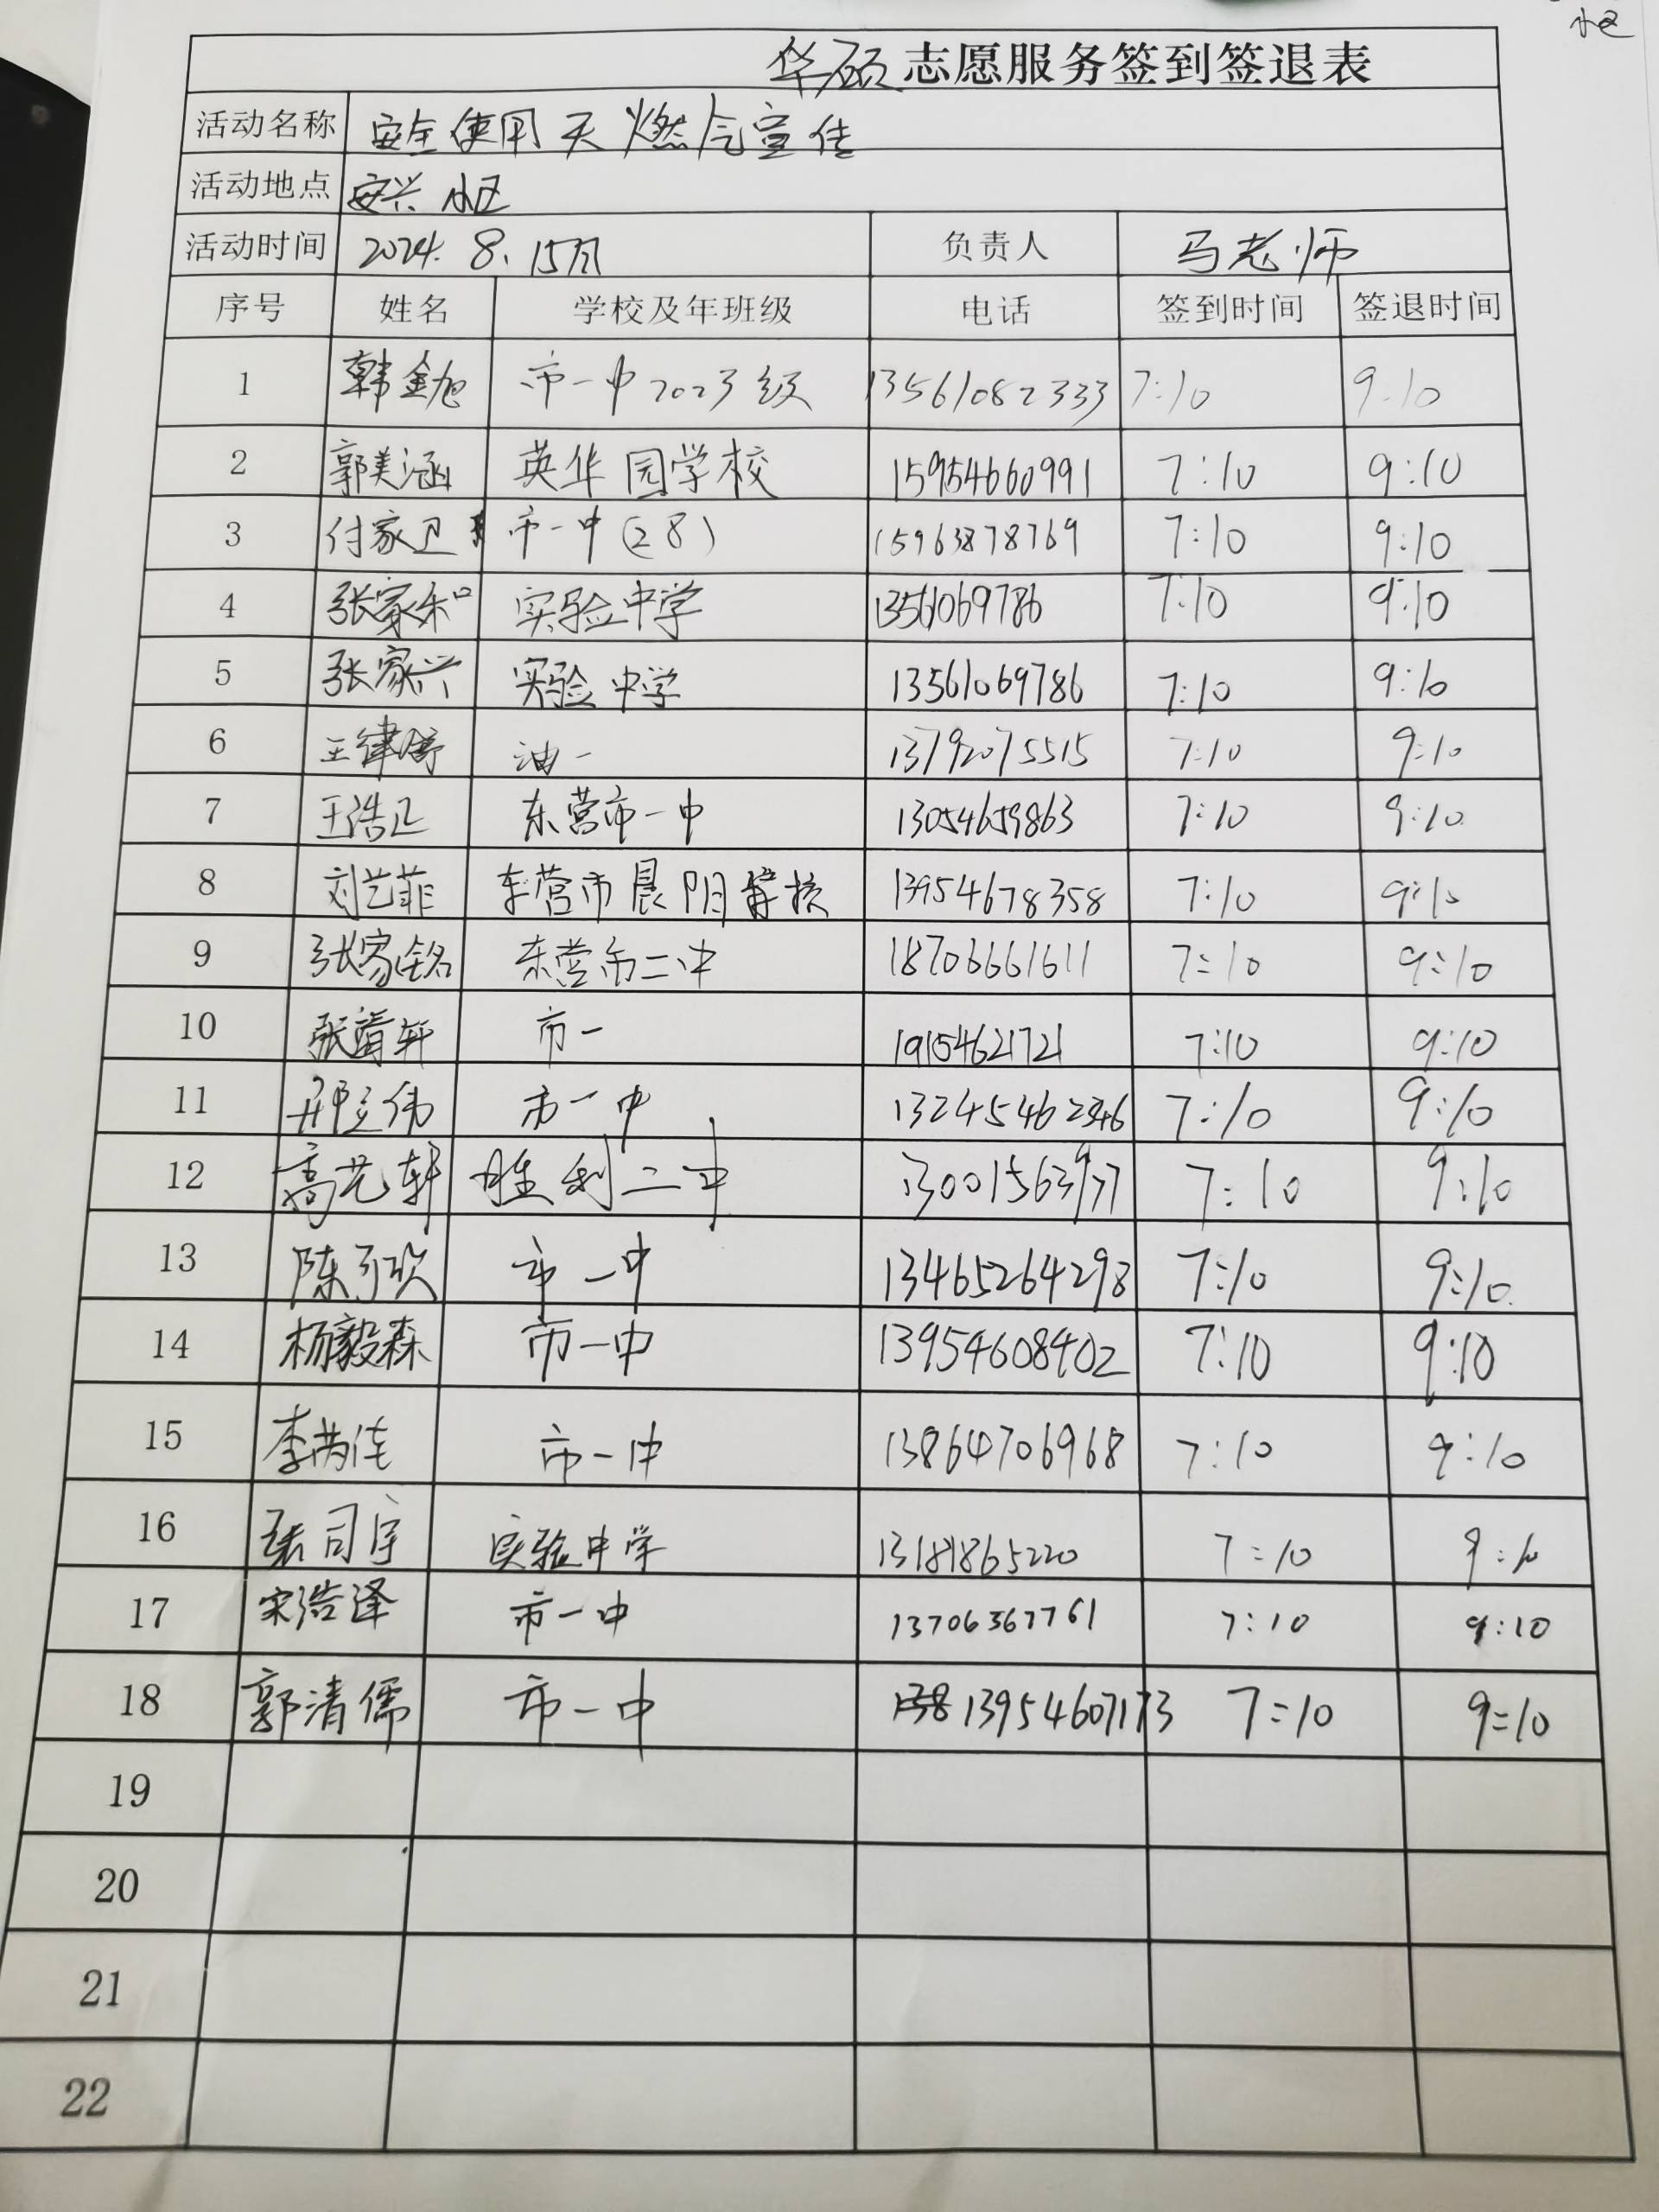 小区
华硕志愿服务签到签退表
活动名称 安全使用天燃气宣传
活动地点 安兴小区
活动时间 2024.8.15 负责人 马老师
序号 姓名 学校及年班级 电话 签到时间 签退时间
1 韩金旭 市一中2023级 13561082333 7:10 9:10
2 郭美涵 英华园学校 15954660991 7:10 9:10
3 付家卫 市一中(28) 15963878769 7:10 9:10
4 张家和 实验中学 1356069786 7:10 9:10
5 张家兴 实验中学 13561069786 7:10 9:10
6 王律 油一 13792075515 7:10 9:10
7 王浩正 东营市一中 13054659863 7:10 9:10
8 刘艺菲 东营市晨阳学校 13954678358 7:10 9:10
9 张家铭 东营市二中 18706661611 7:10 9:10
10 张 轩 市一 19154621721 7:10 9:10
11 邢立伟 市一中 13245462346 7:10 9:10
12 高艺轩 胜利二中 13001563977 7:10 9:10
13 陈子欣 市一中 13465264298 7:10 9:10
14 杨毅森 市一中 13954608402 7:10 9:10
15 李芮佳 市一中 13864706968 7:10 9:10
16 张司宇 实验中学 13181865220 7:10 9:10
17 宋浩泽 市一中 13706367761 7:10 9:10
18 郭清儒 市一中 13954607173 7:10 9:10
19
20
21
22